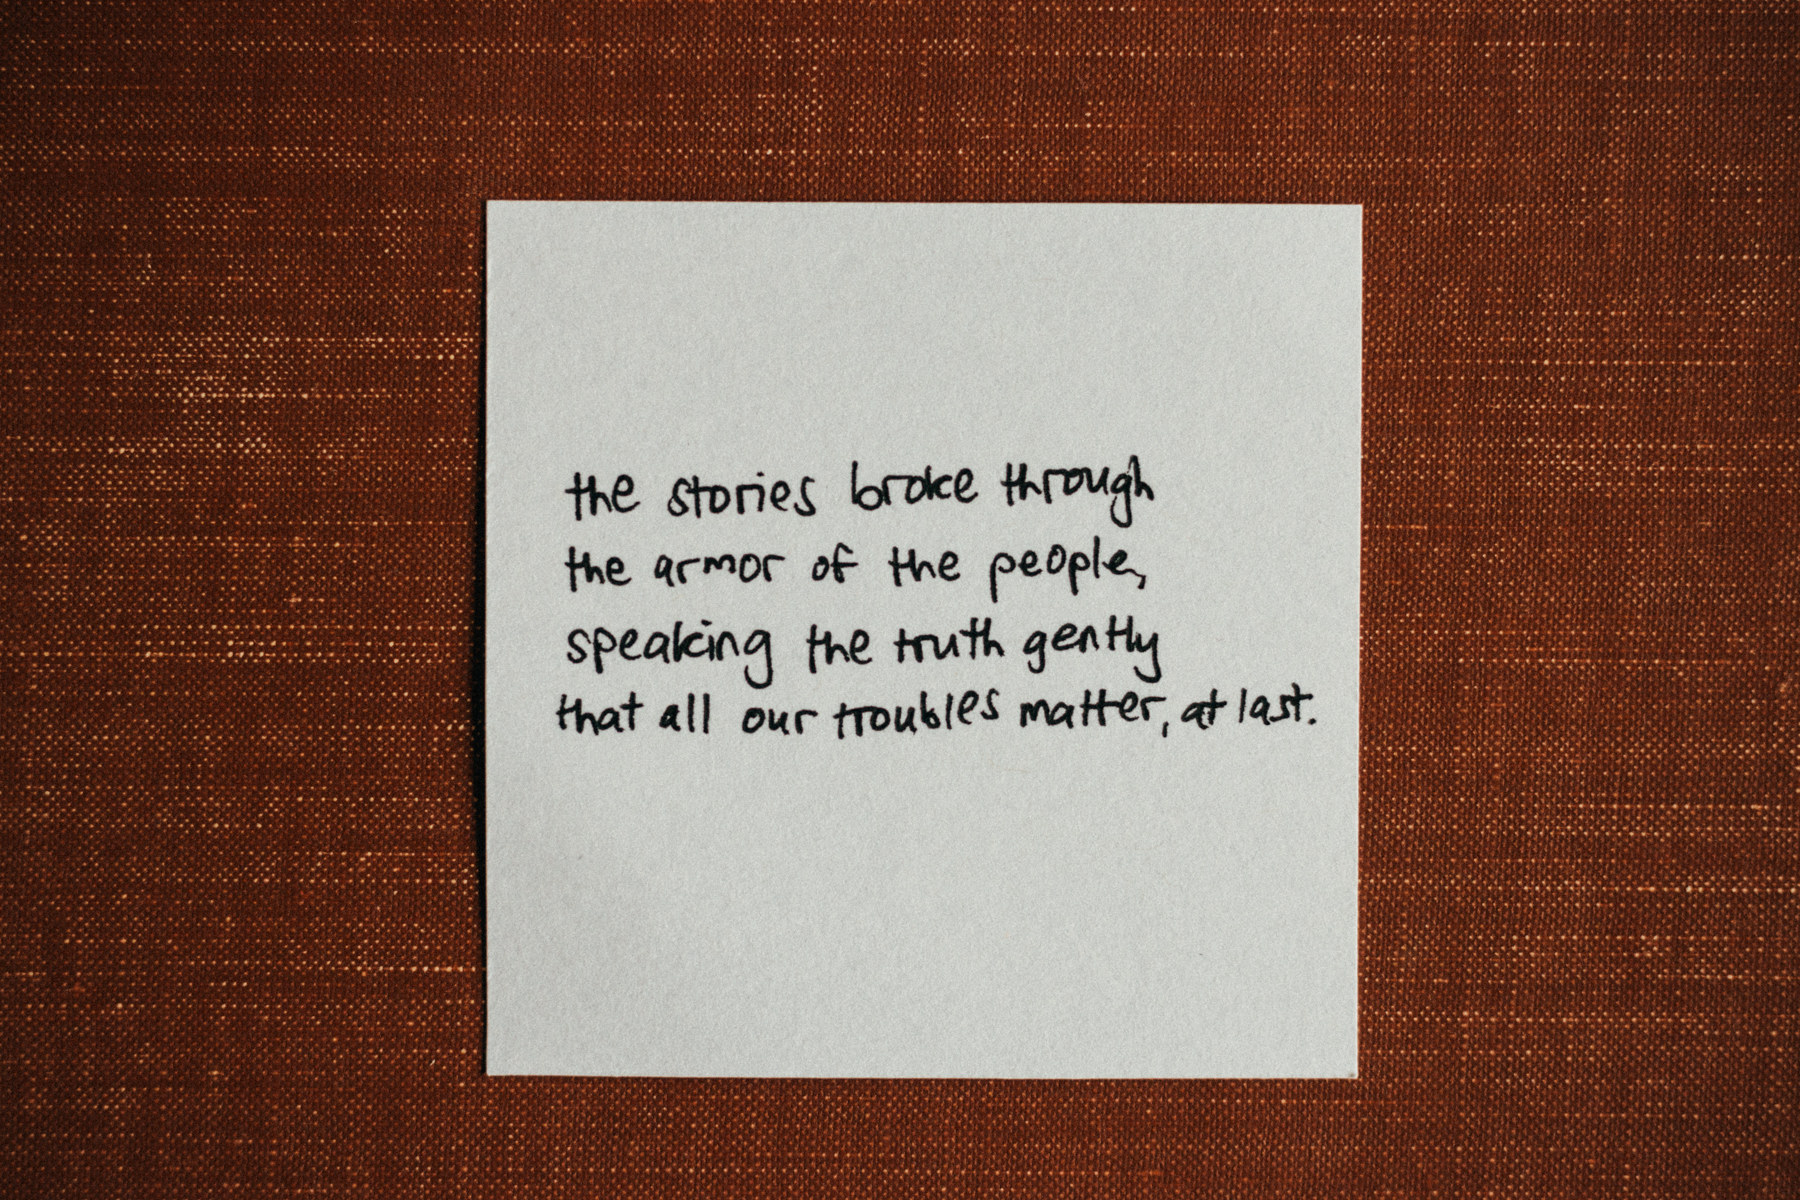 the stories broke through
the armor of the people,
speaking the truth gently
that all our troubles matter, at last.